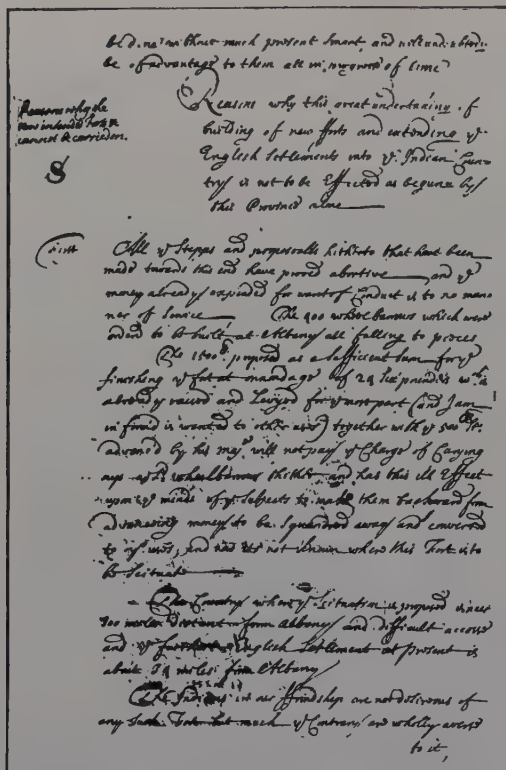 be d. ne without much present smart, and will undoubted:
be of advantage to them all in progress of time
Reasons why the
new intended forts
cannot be carried on.
Reasons why this great undertaking of
building of new fforts and extending ye
English Settlements into ye Indian Coun-
trys is not to be Effected as begunn by
this Province alone
S
first
All ye Stepps and proposealls hitherto that have been
made towards this end have proved abortive and ye
money already expended for want of Conduct is to no man-
ner of Service The 400 wheelbarrows which were
orderd to be built at Albany all falling to pieces
The 1500 proposed as a sufficient sum for ye
finishing ye fort at onnondage of 24 is
already raised and Layed for ye most part (and I am
informd is wanted to other uses) together with ye 500 St.
advanc'd by his may will not pay ye Charge of Carying
upp wheelbarrows thither and has this ill Effect
upon ye minds of ye subjects to make them backward from
advancing money to be squandred away and converted
to uses, and tis not known where this Fort is to
be Scituate
The Country where ye Scituation is proposed is near
miles distant from Albany and difficult access
and ye furthest English Settlement at present is
about miles from Albany
The Indians in our ffriendship are not desirous of
any such Fort but much ye Contrary are wholly averse
to it,